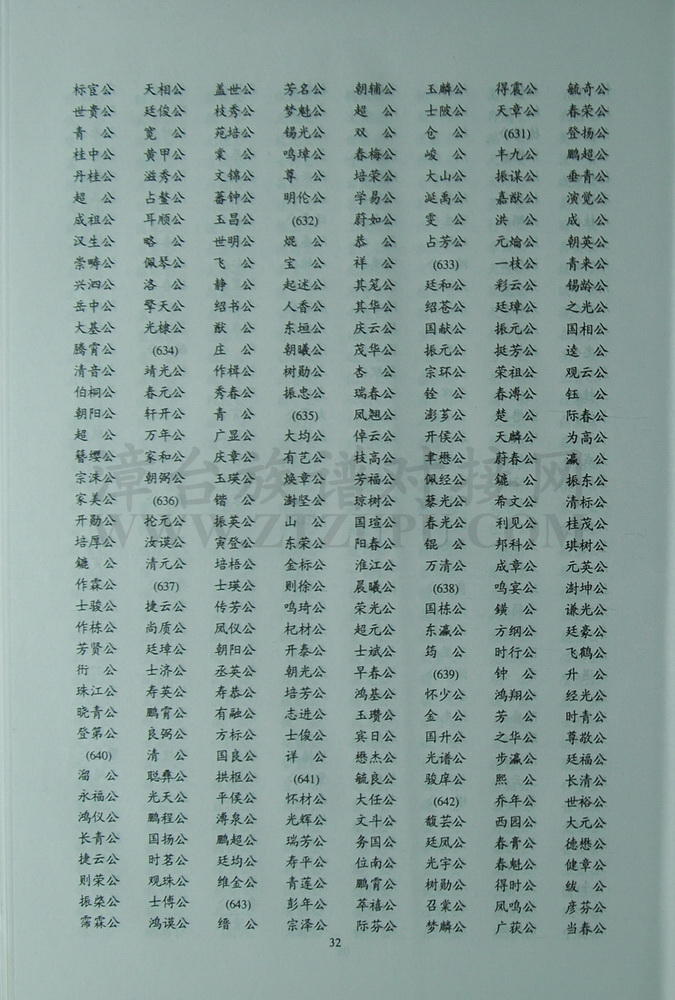 标宦公 天相公 盖世公 芳名公 朝辅公 玉麟公 得震公 毓奇公
世贵公 廷俊公 枝秀公 梦魁公 超公 士陂公 天章公 春荣公
青公 宽公 苑培公 锡光公 双公 仓公 (631) 登扬公
桂中公 黄甲公 棠公 鸣璋公 春梅公 峻公 丰九公 鹏超公
丹桂公 溢秀公 文锦公 尊公 培荣公 大山公 振谋公 垂青公
超公 占鳌公 蕃钟公 明伦公 学易公 诞禹公 嘉猷公 演觉公
成祖公 耳顺公 玉昌公 (632) 蔚如公 雯公 洪公 成公
汉生公 略公 世明公 焜公 恭公 占芳公 元爚公 朝英公
崇畴公 佩琴公 飞公 宝公 祥公 (633) 一枝公 青来公
兴泗公 洛公 静公 起述公 其笼公 廷和公 彩云公 锡龄公
岳中公 擎天公 绍书公 人香公 其华公 绍苍公 廷璋公 之光公
大基公 光棣公 猷公 东垣公 庆云公 国献公 振元公 国相公
腾霄公 (634) 庄公 朝曦公 茂华公 振元公 挺芳公 逵公
清音公 靖光公 作楫公 树勋公 杏公 宗环公 荣祖公 观云公
伯桐公 春元公 秀春公 振忠公 瑞春公 铨公 春溥公 钰公
朝阳公 轩开公 青公 (635) 凤翘公 澎芗公 楚公 际春公
超公 万年公 广显公 大均公 倬云公 开侯公 天麟公 为高公
簪缨公 家和公 庆章公 有艺公 枝高公 聿懋公 蔚春公 瀛公
宗洙公 朝弼公 玉瑛公 焕章公 芳福公 佩经公 镳公 振东公
家美公 (636) 锴公 澍坚公 琼树公 藜光公 希文公 清标公
开勋公 抡元公 振英公 山公 国瑄公 春光公 利见公 桂茂公
培厚公 汝谟公 寅登公 东荣公 阳春公 锟公 邦科公 琪树公
镳公 清元公 培梧公 金标公 淮江公 万清公 成章公 元英公
作霖公 (637) 士瑛公 则徐公 晨曦公 (638) 鸣宴公 澍坤公
士骏公 捷云公 传芳公 鸣琦公 荣光公 国栋公 鐄公 谦光公
作栋公 尚质公 凤仪公 杞材公 超元公 东瀛公 方纲公 廷豪公
芳贤公 廷璋公 朝阳公 开泰公 士斌公 筠公 时行公 飞鹤公
衎公 士济公 丕英公 朝光公 早春公 (639) 钟公 升公
珠江公 寿英公 寿恭公 培芳公 鸿基公 怀少公 鸿翔公 经光公
晓青公 鹏霄公 有融公 志进公 玉瓒公 金公 芳公 时青公
登第公 良弼公 方标公 士俊公 宾日公 国升公 之华公 尊敬公
(640) 清公 国良公 详公 懋杰公 光谱公 步瀛公 廷福公
溜公 聪彝公 拱枢公 (641) 毓良公 骏庠公 熙公 长清公
永福公 光天公 平侯公 怀材公 大任公 (642) 乔年公 世裕公
鸿仪公 鹏程公 溥泉公 光辉公 文斗公 馥芸公 西园公 大元公
长青公 国扬公 鹏超公 瑞芳公 务国公 廷凤公 春膏公 德懋公
捷云公 时茗公 廷均公 寿平公 位南公 光宇公 春魁公 健章公
则荣公 观珠公 维金公 青莲公 鹏霄公 树勋公 得时公 绂公
振燊公 士傅公 (643) 彭年公 萃禧公 召棠公 凤鸣公 彦芬公
霈霖公 鸿谟公 缙公 宗泽公 际芬公 梦麟公 广获公 当春公
32